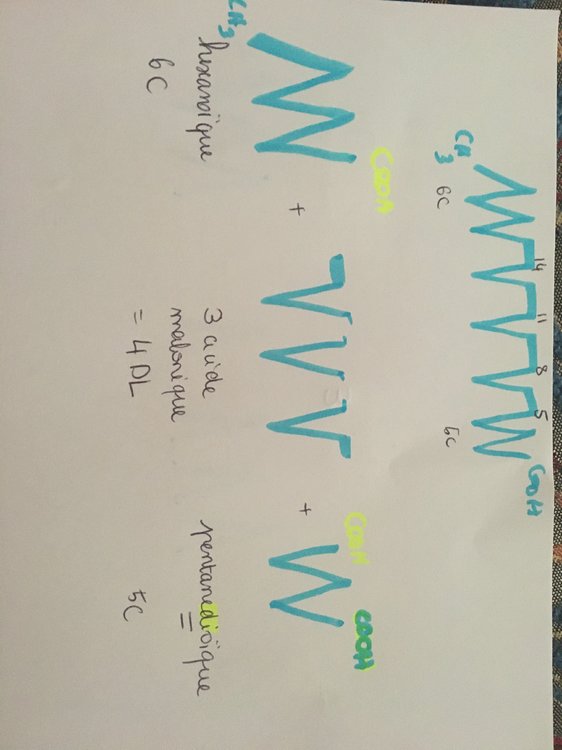 CH3
6C
14
11
8
5
5C
COOH
CH3
COOH
+
COOH
+
COOH
hexanoïque
6C
3 acide
malonique
= 4 DL
pentanedioïque
5C